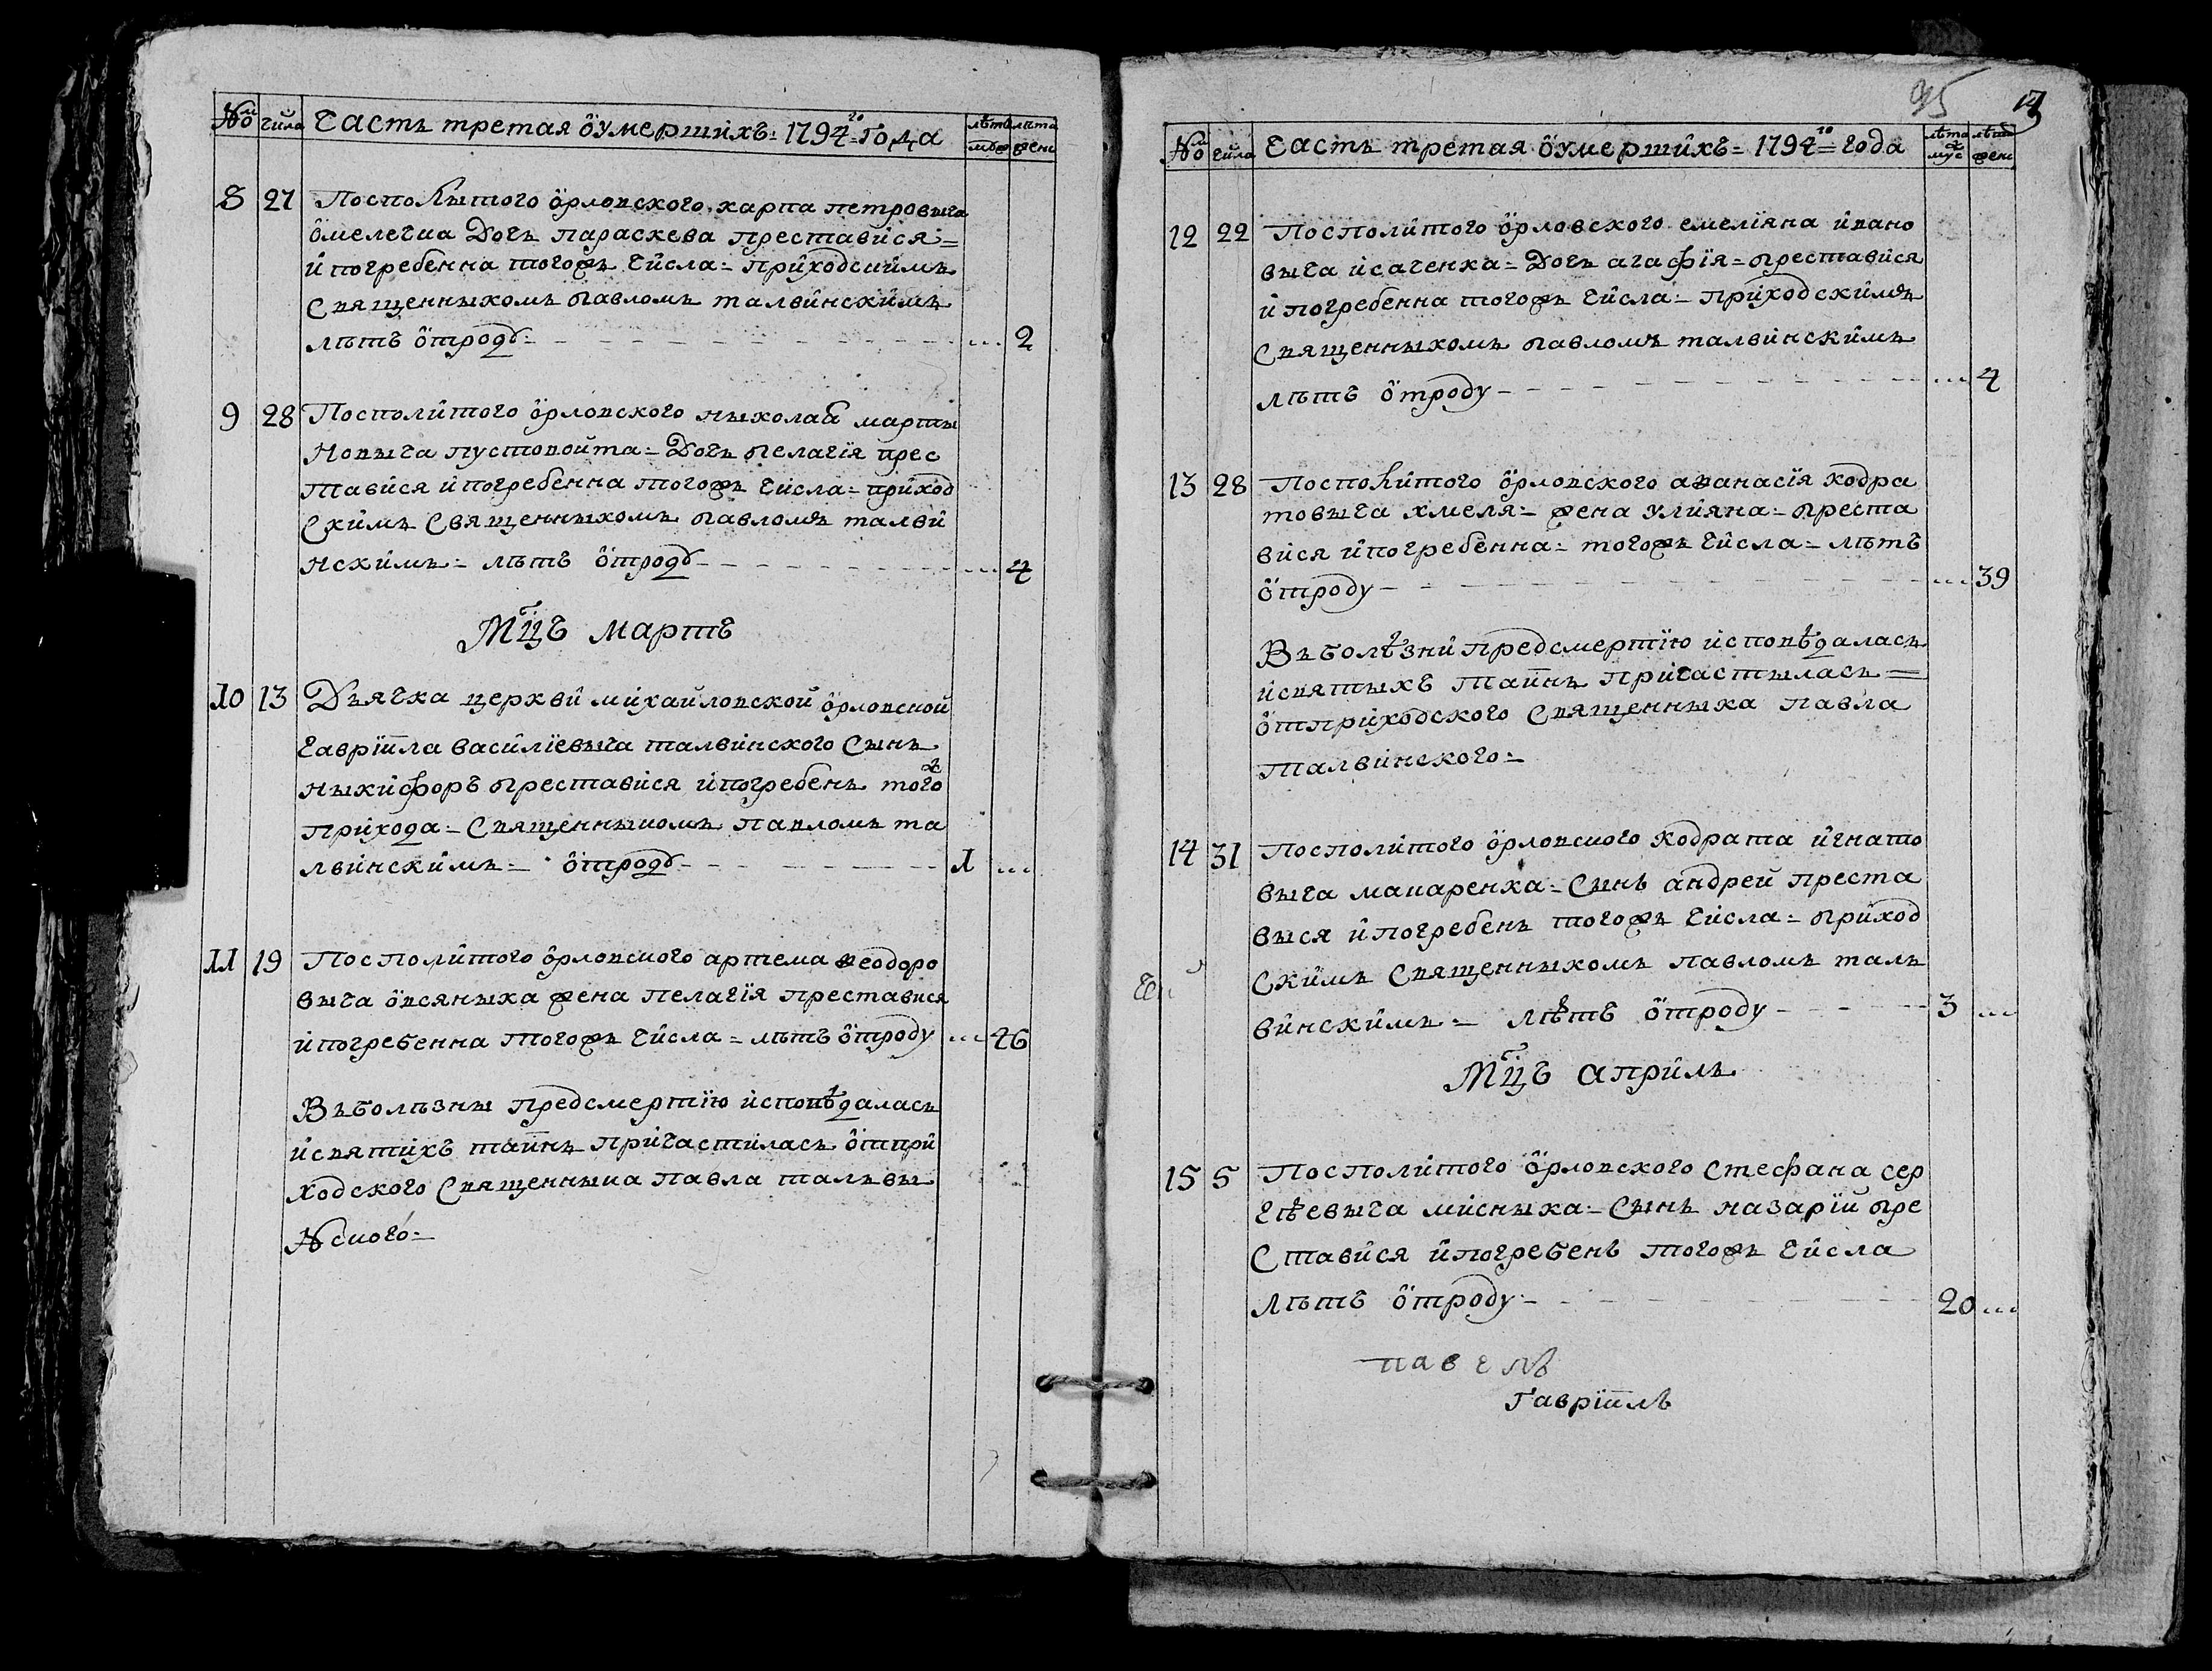 № числа Часть третая о умершихъ: 1794го Года лѣта муж лѣта жен
8 27 Посполытого орловского карпа петровыча
омелечка Дочь параскева преставися =
и погребенна тогожь числа = приходскимь
Священныкомь павломь талвинскимь
лѣтъ отроду ... 2
9 28 Посполитого орловского ныколая марты
новыча пустовойта = Дочь пелагія прес
тавися и погребенна тогожь числа = приход
скимь Священныкомь павломь талви
нскимь = лѣтъ отроду ... 4
Мцъ мартъ
10 13 Дьячка церкви михайловской орловской
гавріила василіевыча талвинского Сынь
ныкифоръ преставися и погребень того ж
прихода = Священныкомь павломь та
лвинскимь = отроду 1 ...
11 19 Посполитого орловского артема ѳеодоро
выча овсяныка жена пелагія преставися
и погребенна тогожь числа = лѣтъ отроду ... 46
Вь болѣзны предсмертію исповѣдалась
и святихъ таинь причастилась отпри
ходского Священныка павла тальвы
нского =
95
№ числа Часть третая о умершихъ = 1794го = года лѣта муж лѣта жен
12 22 Посполитого орловского емеліяна ивано
выча исаченка = Дочь агафія = преставися
и погребенна тогожь числа = приходскимь
Священныкомь павломь талвинскимь
лѣтъ отроду ... 4
13 28 Посполитого орловского аѳанасія кодра
товыча хмеля = жена улияна = преста
вися и погребенна = тогожь числа = лѣтъ
отроду ... 39
Вь болѣзни предсмертію исповѣдалась
и святыхъ таинь причастылась =
отприходского Священныка павла
талвинского =
14 31 Посполитого орловского кодрата игнато
выча макаренка = Сынь андрей преста
выся и погребень тогожь числа = приход
скимь Священныкомь павломь таль
винскимь = лѣтъ отроду 3 ...
Мцъ априль
15 5 Посполитого орловского стефана сер
гѣевыча мисныка = Сынь назарій пре
ставися и погребень тогожь числа
лѣтъ отроду 20 ...
павелъ
Гавріилъ